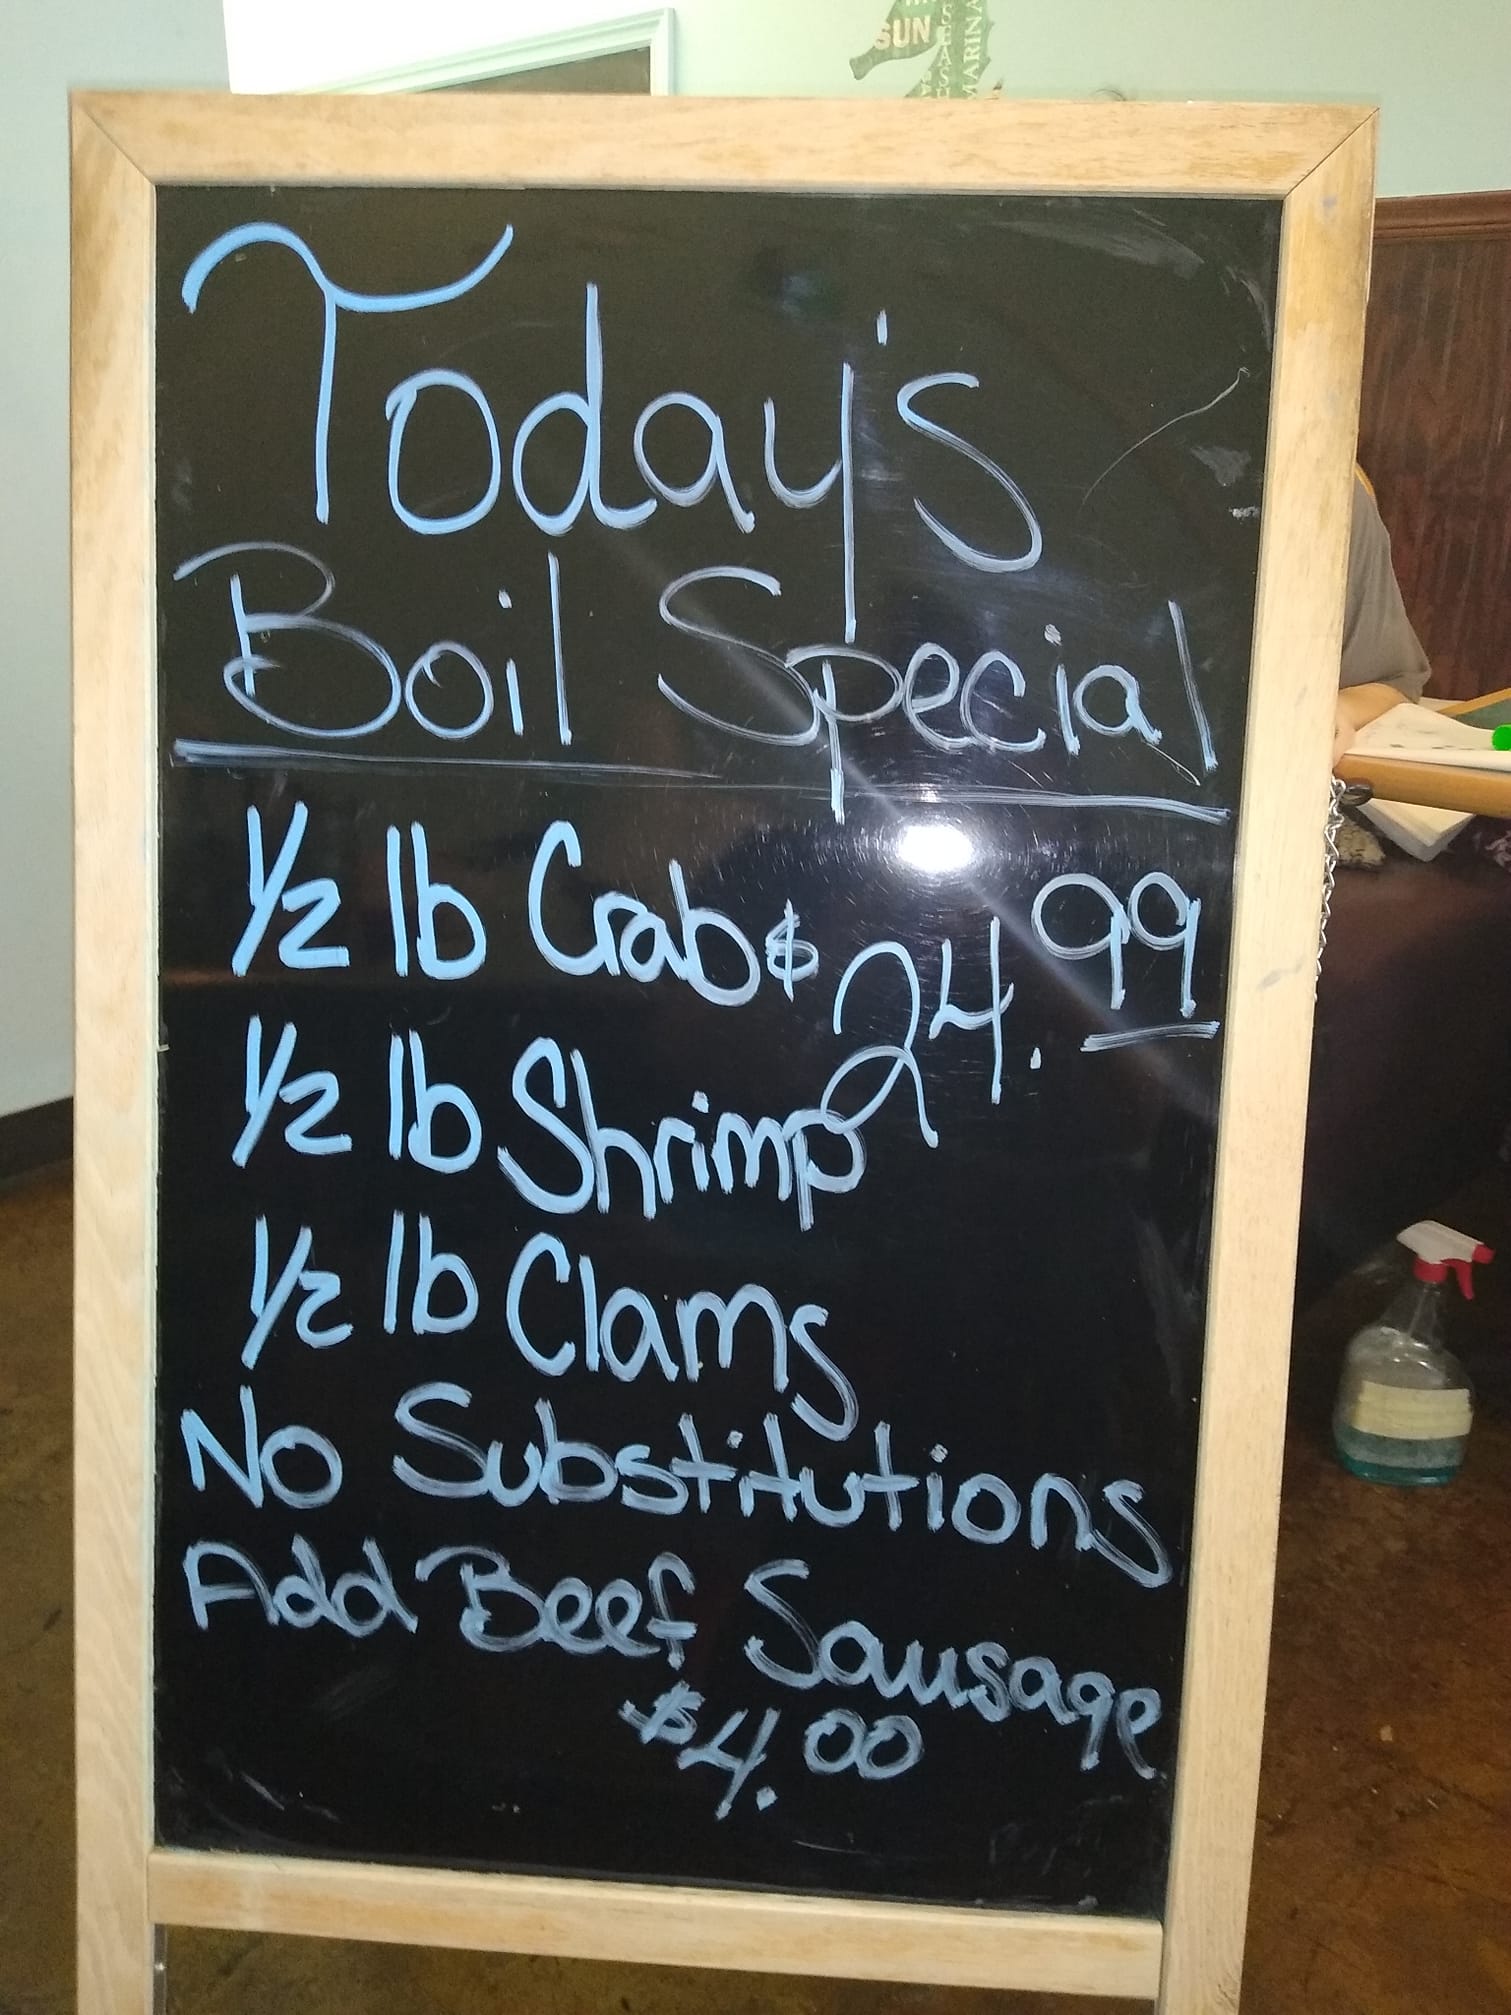 SUN
SEASH
MARINA
Today's
Boil Special
1/2 lb Crab $24.99
1/2 lb Shrimp
1/2 lb Clams
No Substitutions
Add Beef Sausage
$4.00